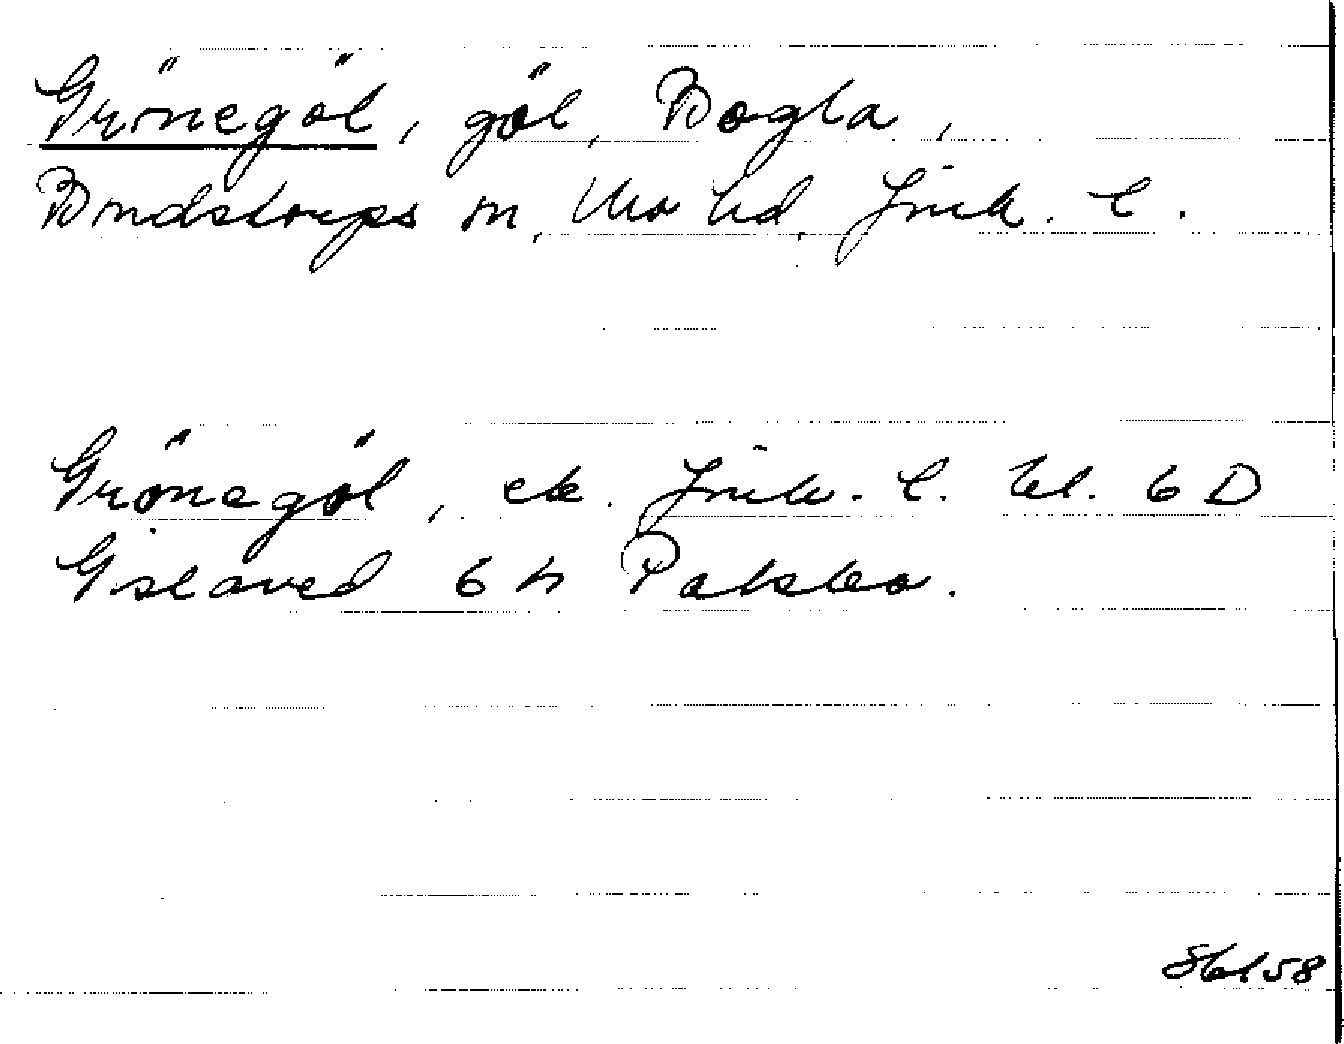 Grönegöl, göl, Bogla,
Bondstorps sn, Mo hd, Jönk. l.
Grönegöl, ek. Jönk. l. bl. 6 D
Gislaved 6 h Palsbo.